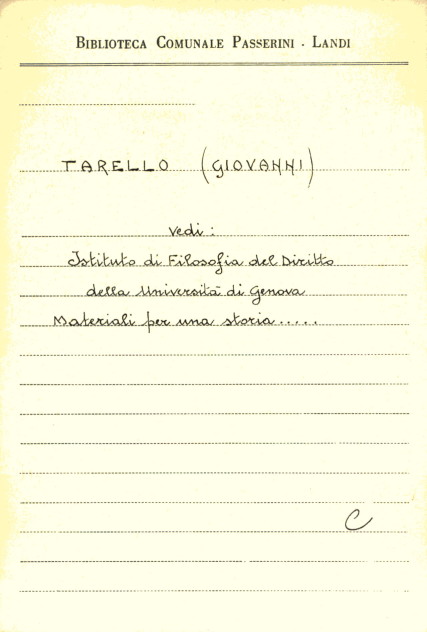 BIBLIOTECA COMUNALE PASSERINI - LANDI
TARELLO (GIOVANNI)
Vedi:
Istituto di Filosofia del Diritto
della Università di Genova
Materiali per una storia.....
C